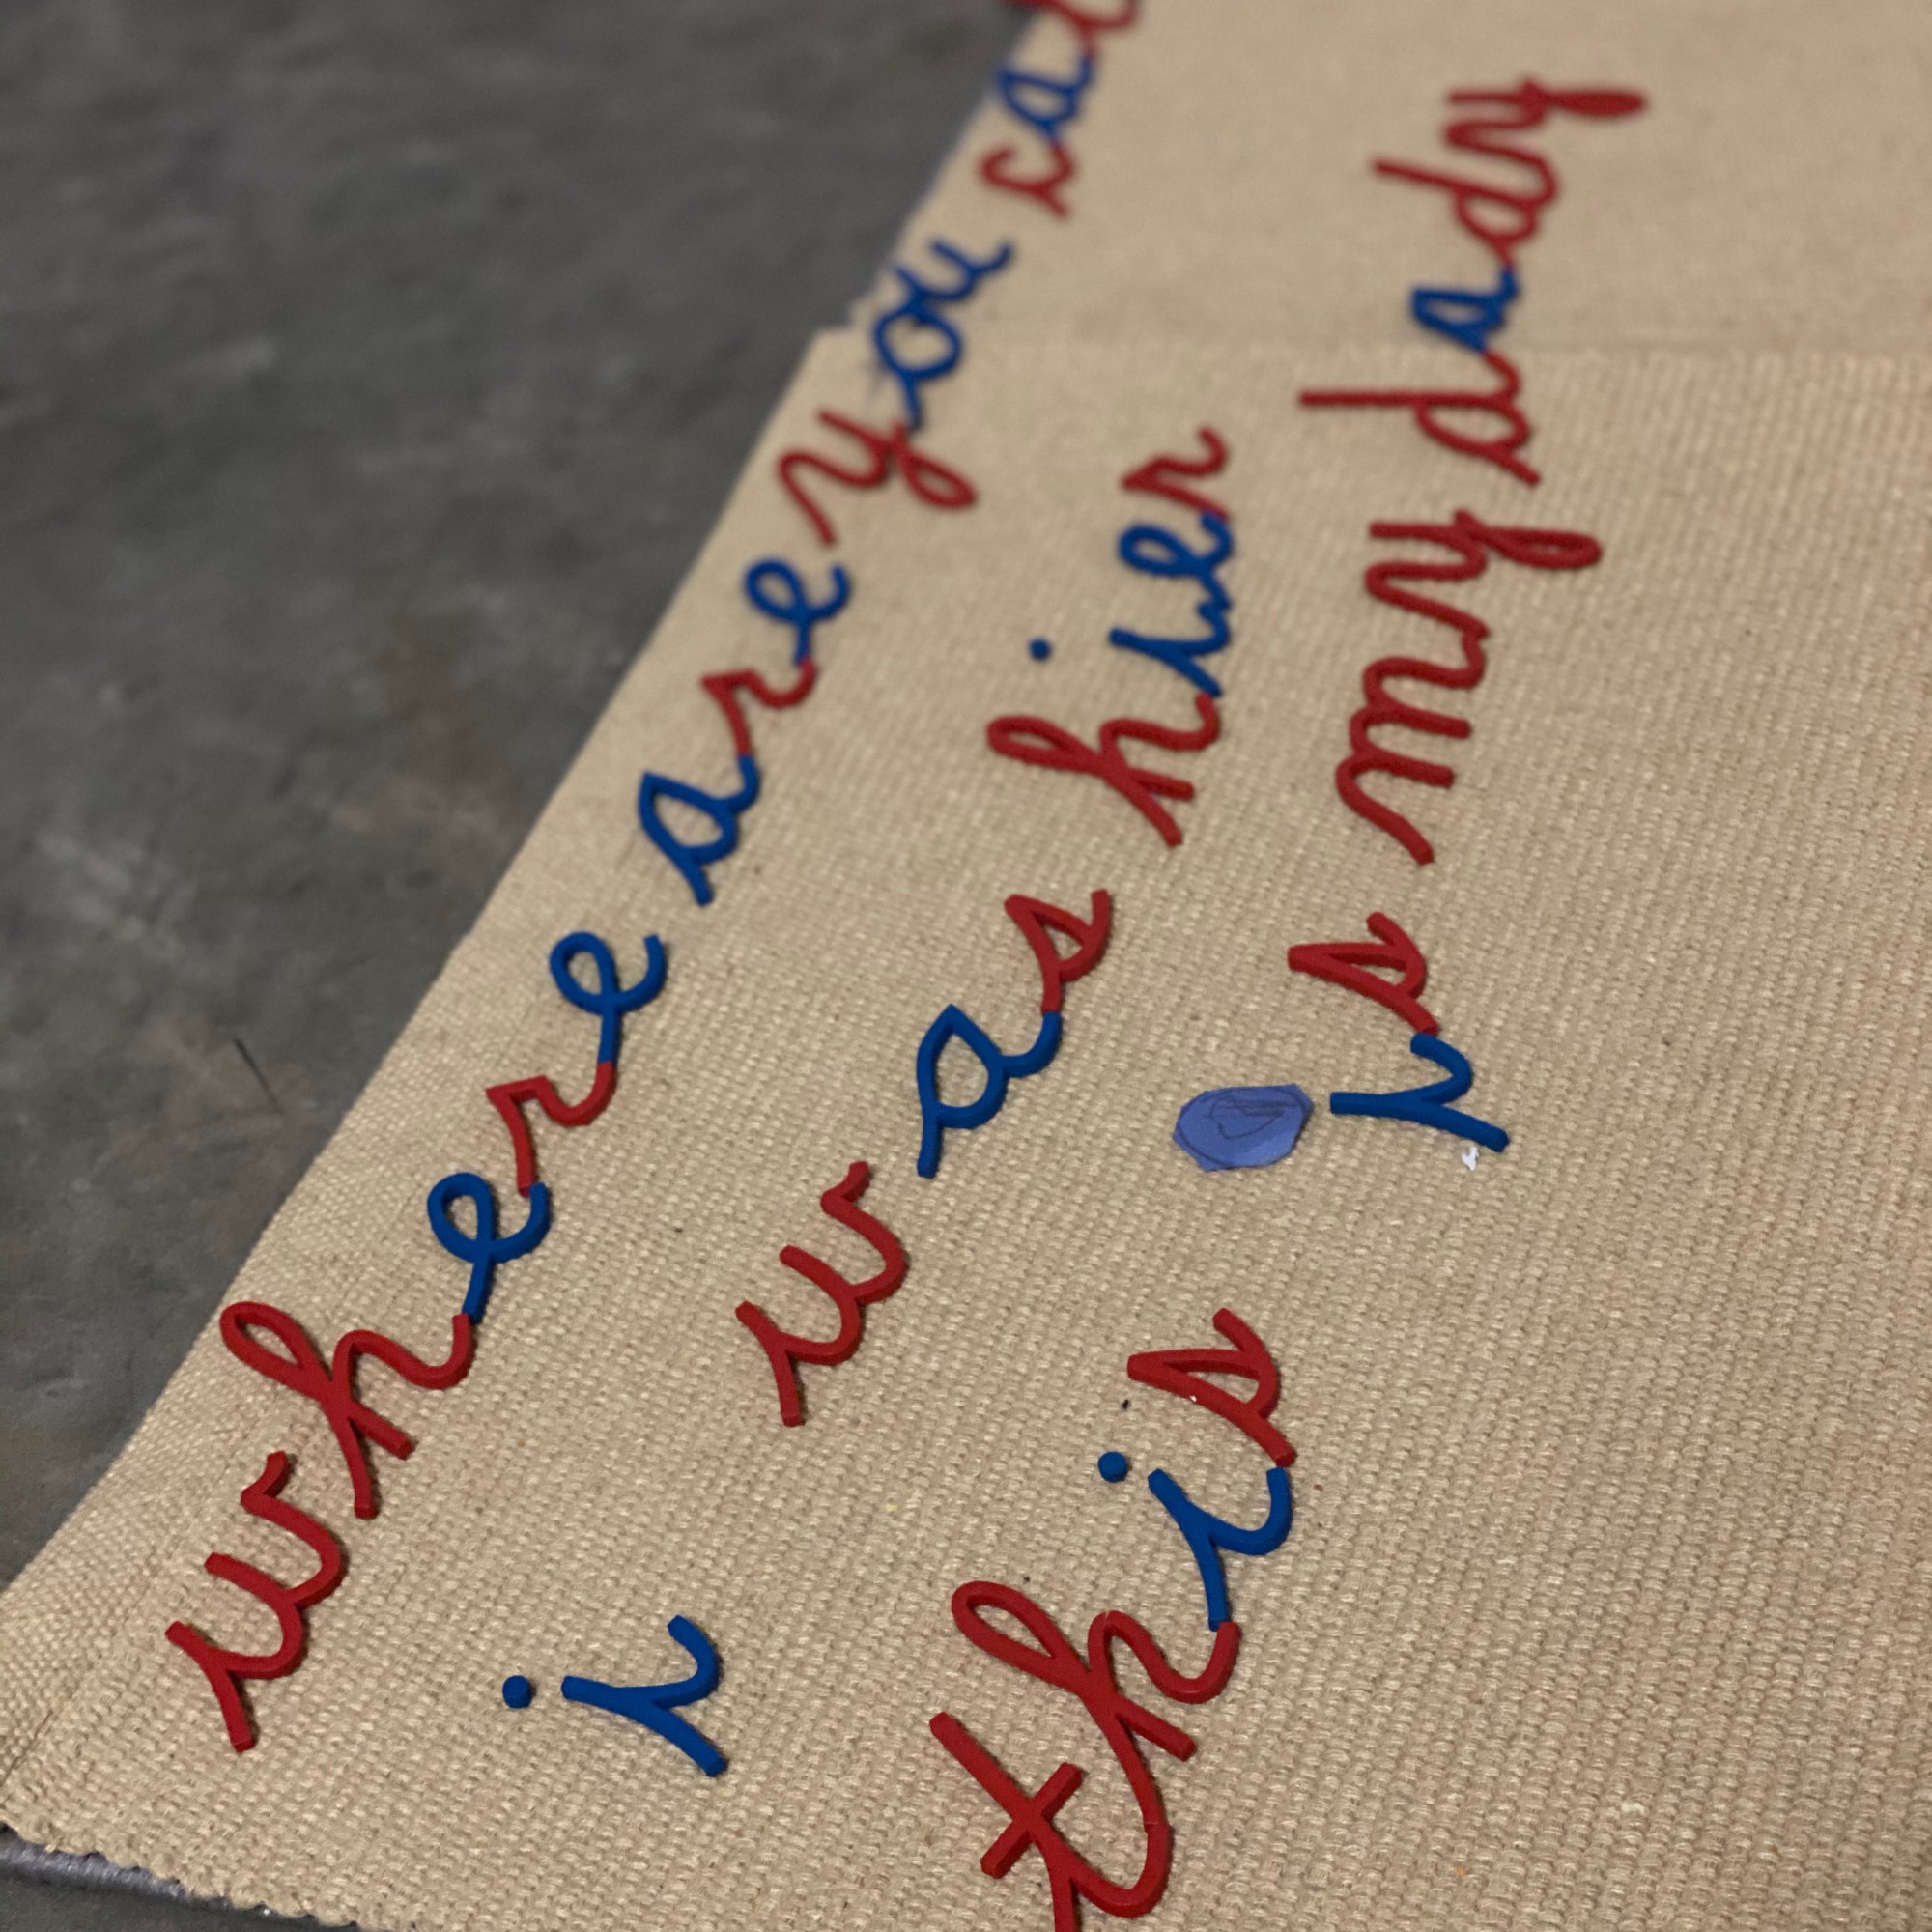 where are you
i was hier
this is my dady